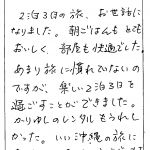 2泊3日の旅、お世話に
なりました。朝ごはんもとても
おいしく、部屋も快適でした。
あまり旅に慣れていないの
ですが、楽しい2泊3日を
過ごすことができました。
かりゆしのレンタルもうれし
かった。いい沖縄の旅に